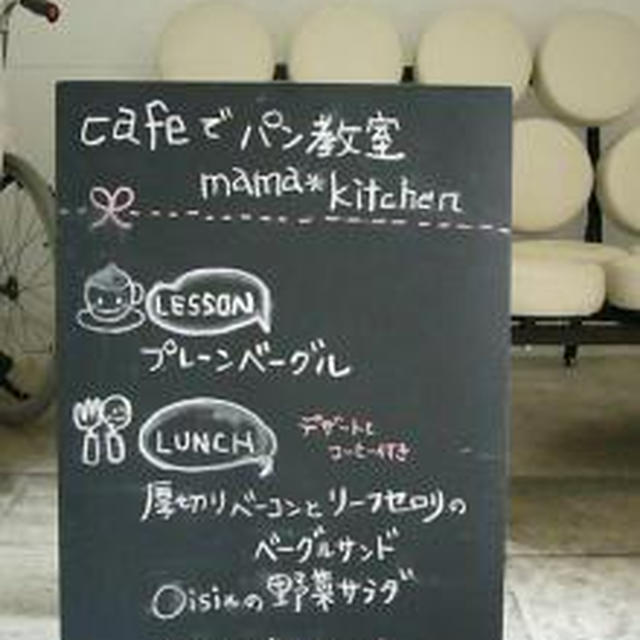 cafeで パン教室
mama*kitchen
LESSON
プレーンベーグル
LUNCH
デザートと
コーヒー付き
厚切りベーコンとリーフセロリの
ベーグルサンド
Oisixの野菜サラダ